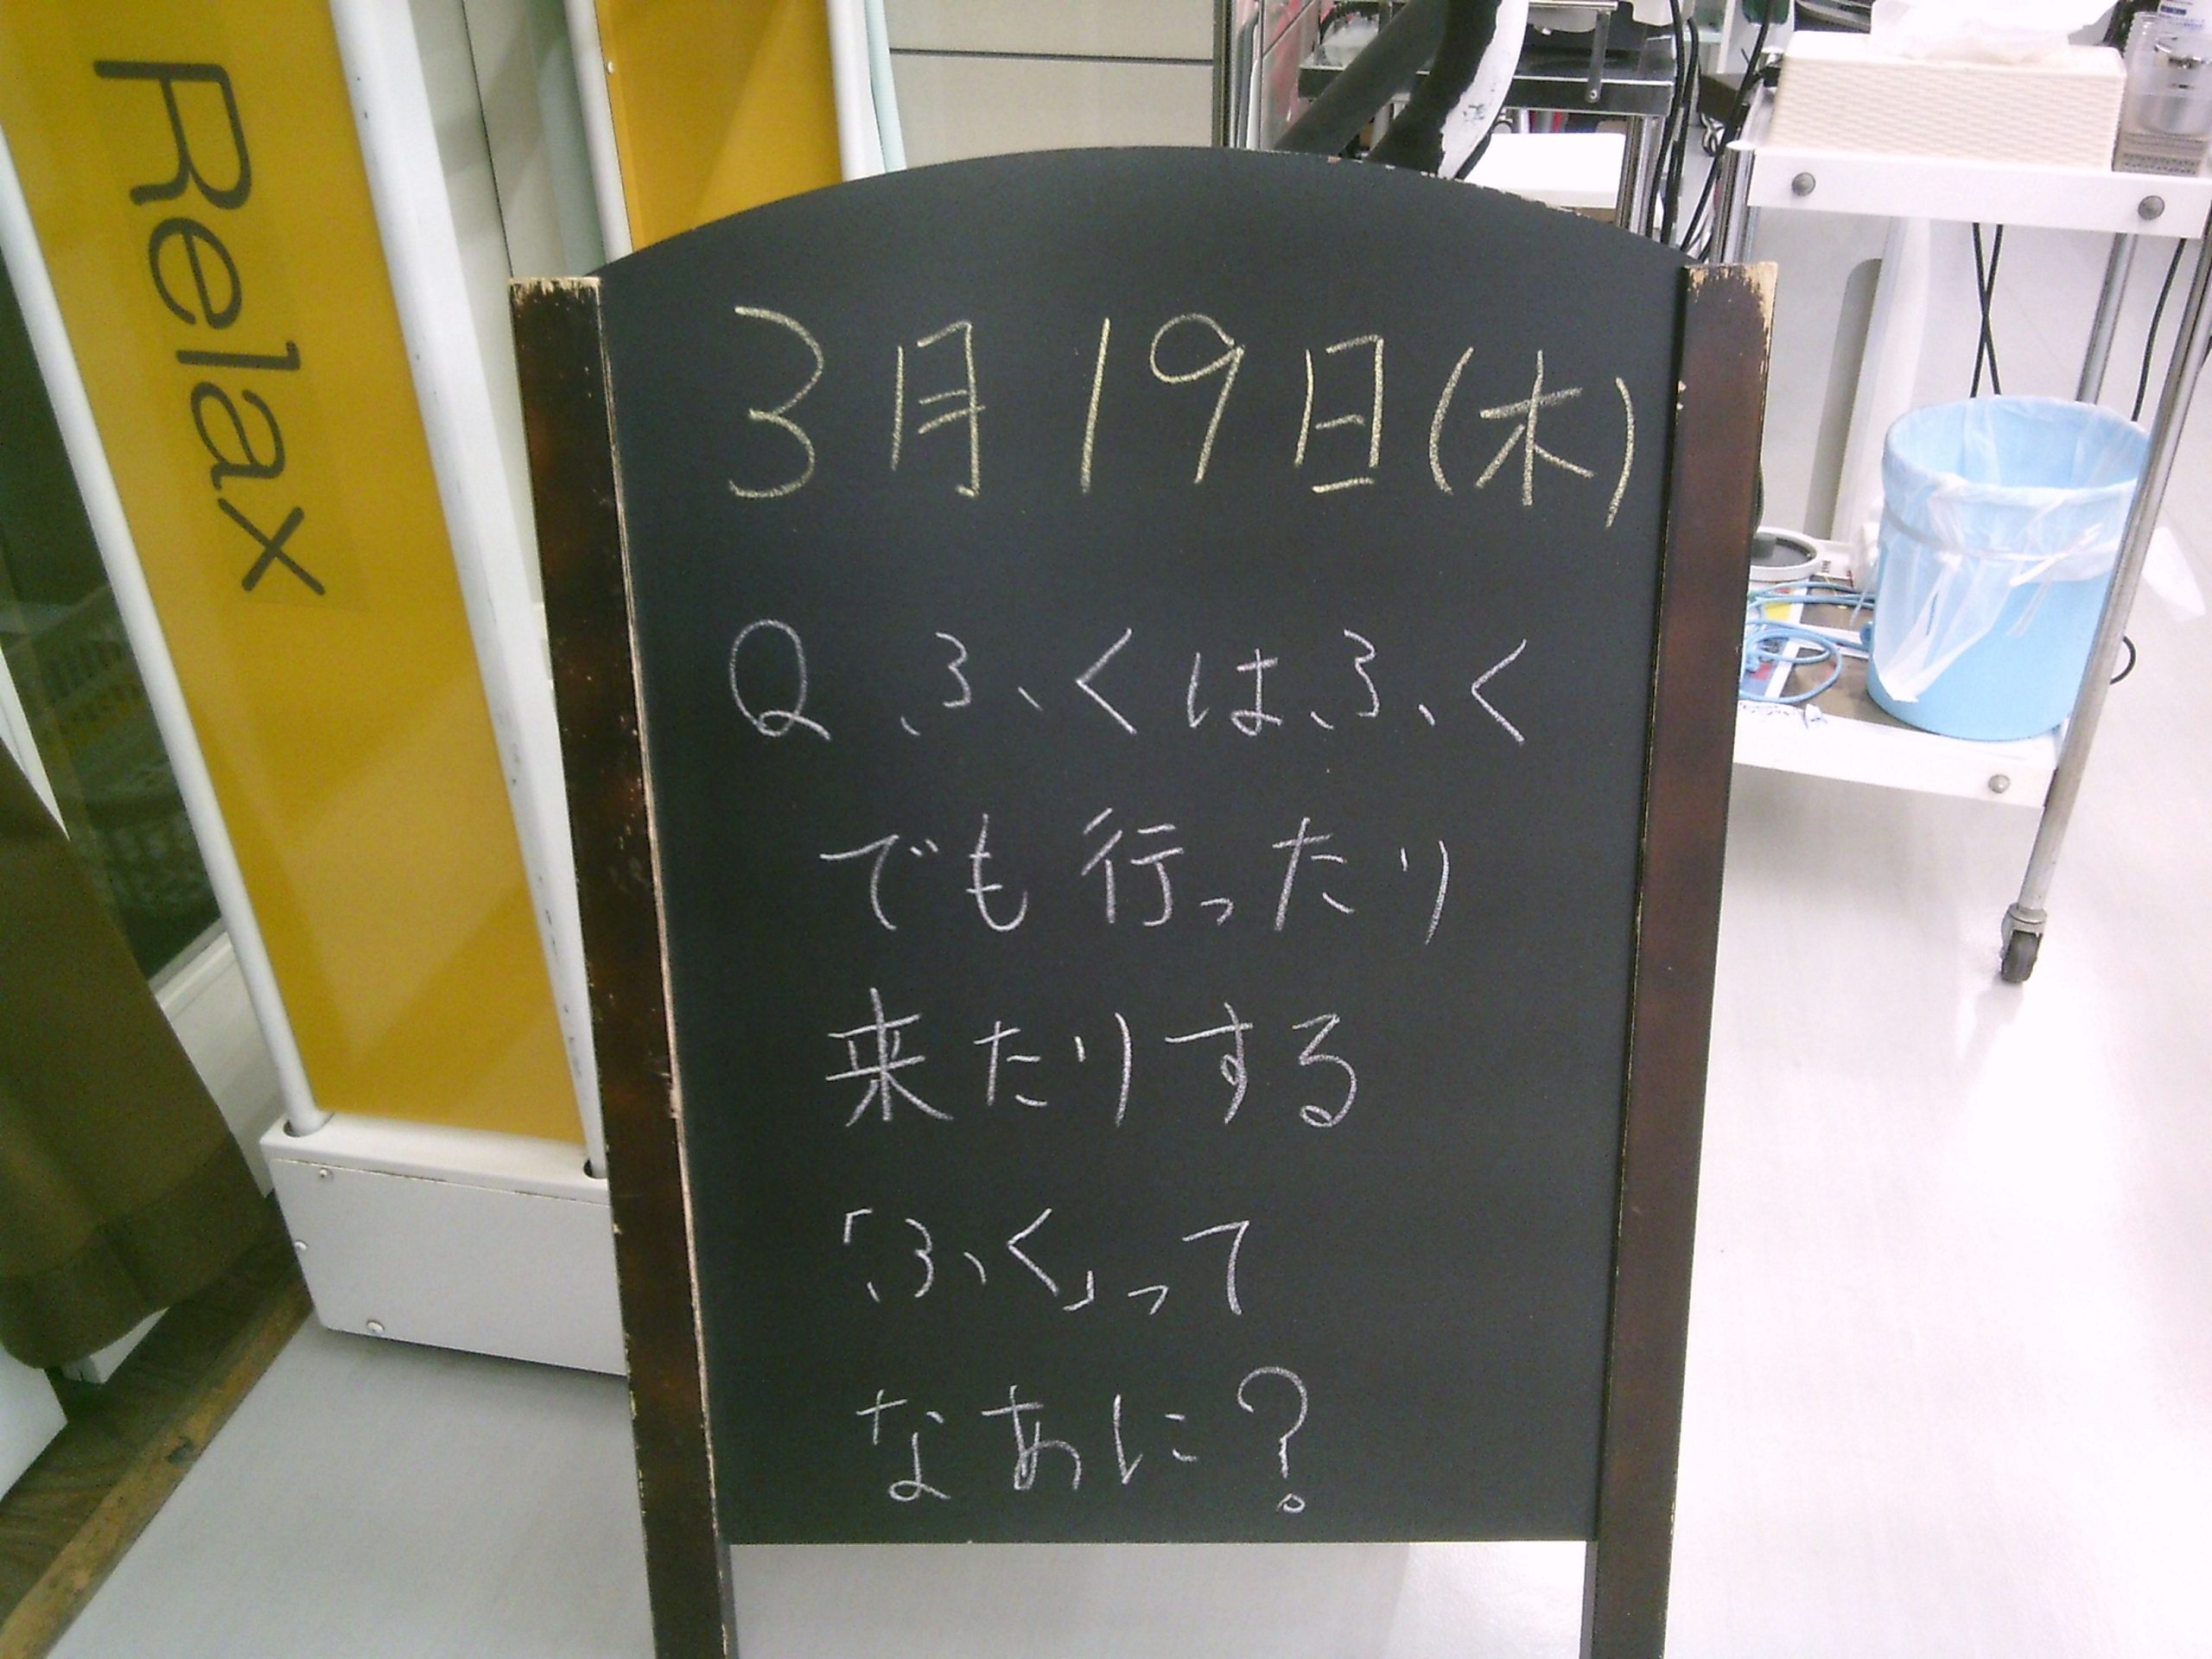 Relax
3月19日(木)
Q ふくはふく
でも行ったり
来たりする
「ふく」って
なあに?